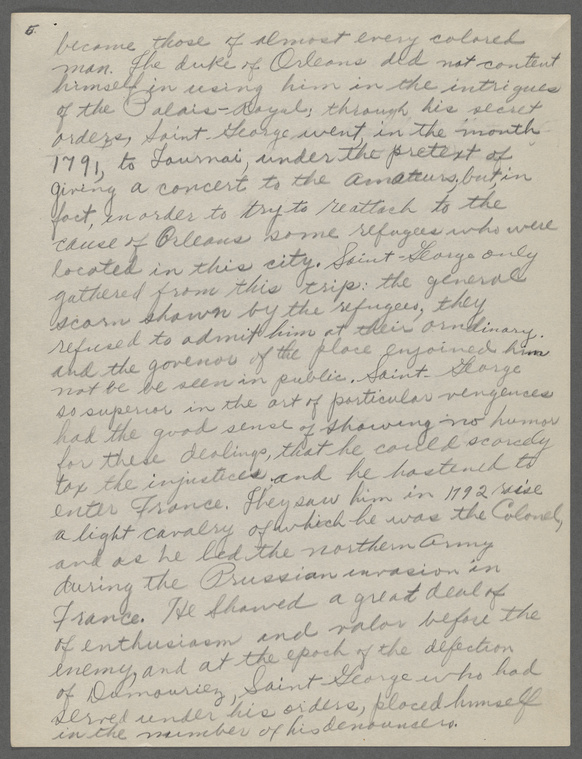 5.
become those of almost every colored
man. The duke of Orleans did not content
himself in using him in the intrigues
of the Palais-Royal; through his secret
orders, Saint-George went, in the month
1791, to Tournai, under the pretext of
giving a concert to the amateurs, but, in
fact, in order to try to reattach to the
cause of Orleans some refugees who were
located in this city. Saint-George only
gathered from this trip: the general
scorn shown by the refugees, they
refused to admit him at their orndinary.
and the govenor of the place enjoined him
not be be seen in public. Saint-George
so superior in the art of particular vengences
had the good sense of showing no humor
for these dealings, that he could scarcely
tax the injustices, and he hastened to
enter France. They saw him in 1792 raise
a light cavalry of which he was the Colonel,
and as he led the northern army
during the Prussian invasion in
France. He showed a great deal of
of enthusiasm and valor before the
enemy, and at the epoch of the defection
of Dumouriez, Saint-George who had
served under his orders, placed himself
in the number of his denouncers.